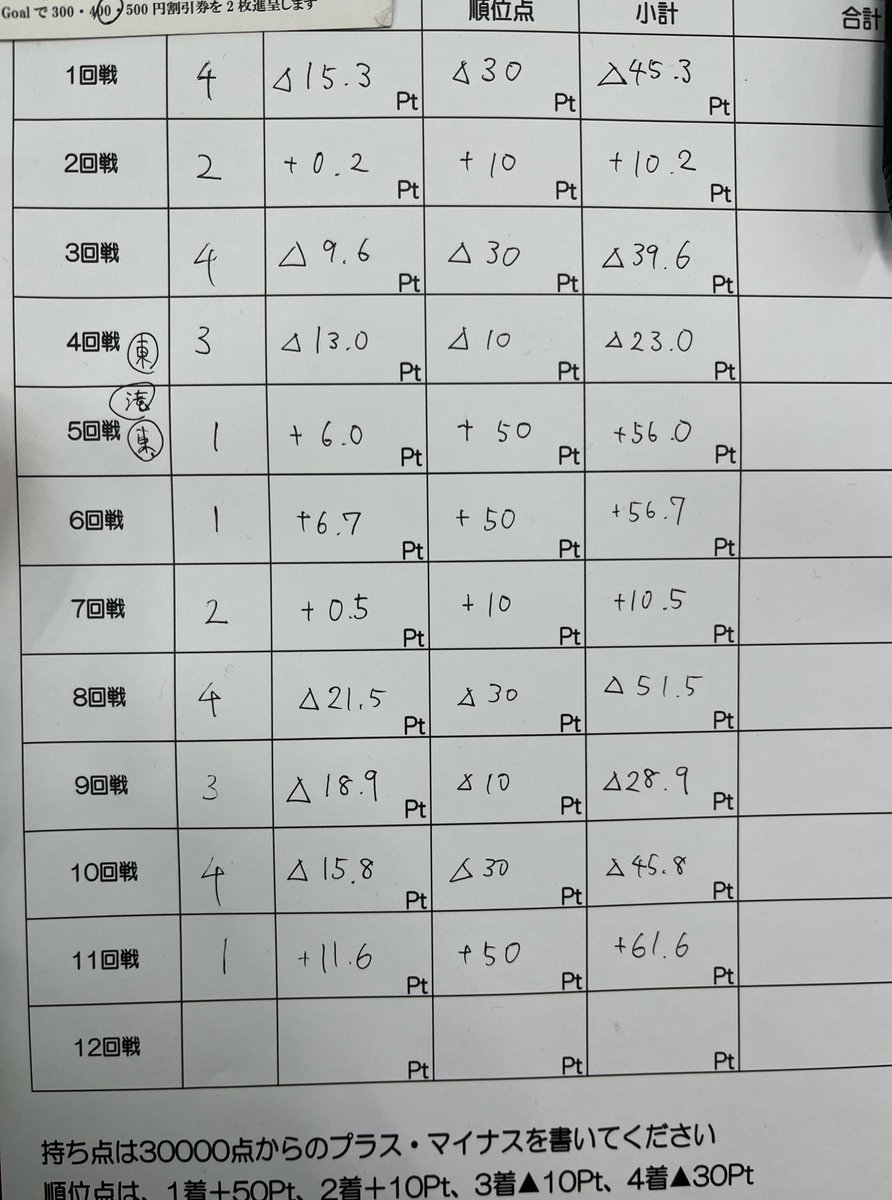 Goal で 300・400・500 円割引券を 2 枚進呈します
順位点 小計 合計
1回戦 4 △15.3 Pt △30 Pt △45.3 Pt
2回戦 2 +0.2 Pt +10 Pt +10.2 Pt
3回戦 4 △9.6 Pt △30 Pt △39.6 Pt
4回戦 東 3 △13.0 Pt △10 Pt △23.0 Pt
5回戦 東 1 +6.0 Pt +50 Pt +56.0 Pt
6回戦 1 +6.7 Pt +50 Pt +56.7 Pt
7回戦 2 +0.5 Pt +10 Pt +10.5 Pt
8回戦 4 △21.5 Pt △30 Pt △51.5 Pt
9回戦 3 △18.9 Pt △10 Pt △28.9 Pt
10回戦 4 △15.8 Pt △30 Pt △45.8 Pt
11回戦 1 +11.6 Pt +50 Pt +61.6 Pt
12回戦 Pt Pt Pt
持ち点は30000点からのプラス・マイナスを書いてください
順位点は、1着+50Pt、2着+10Pt、3着▲10Pt、4着▲30Pt